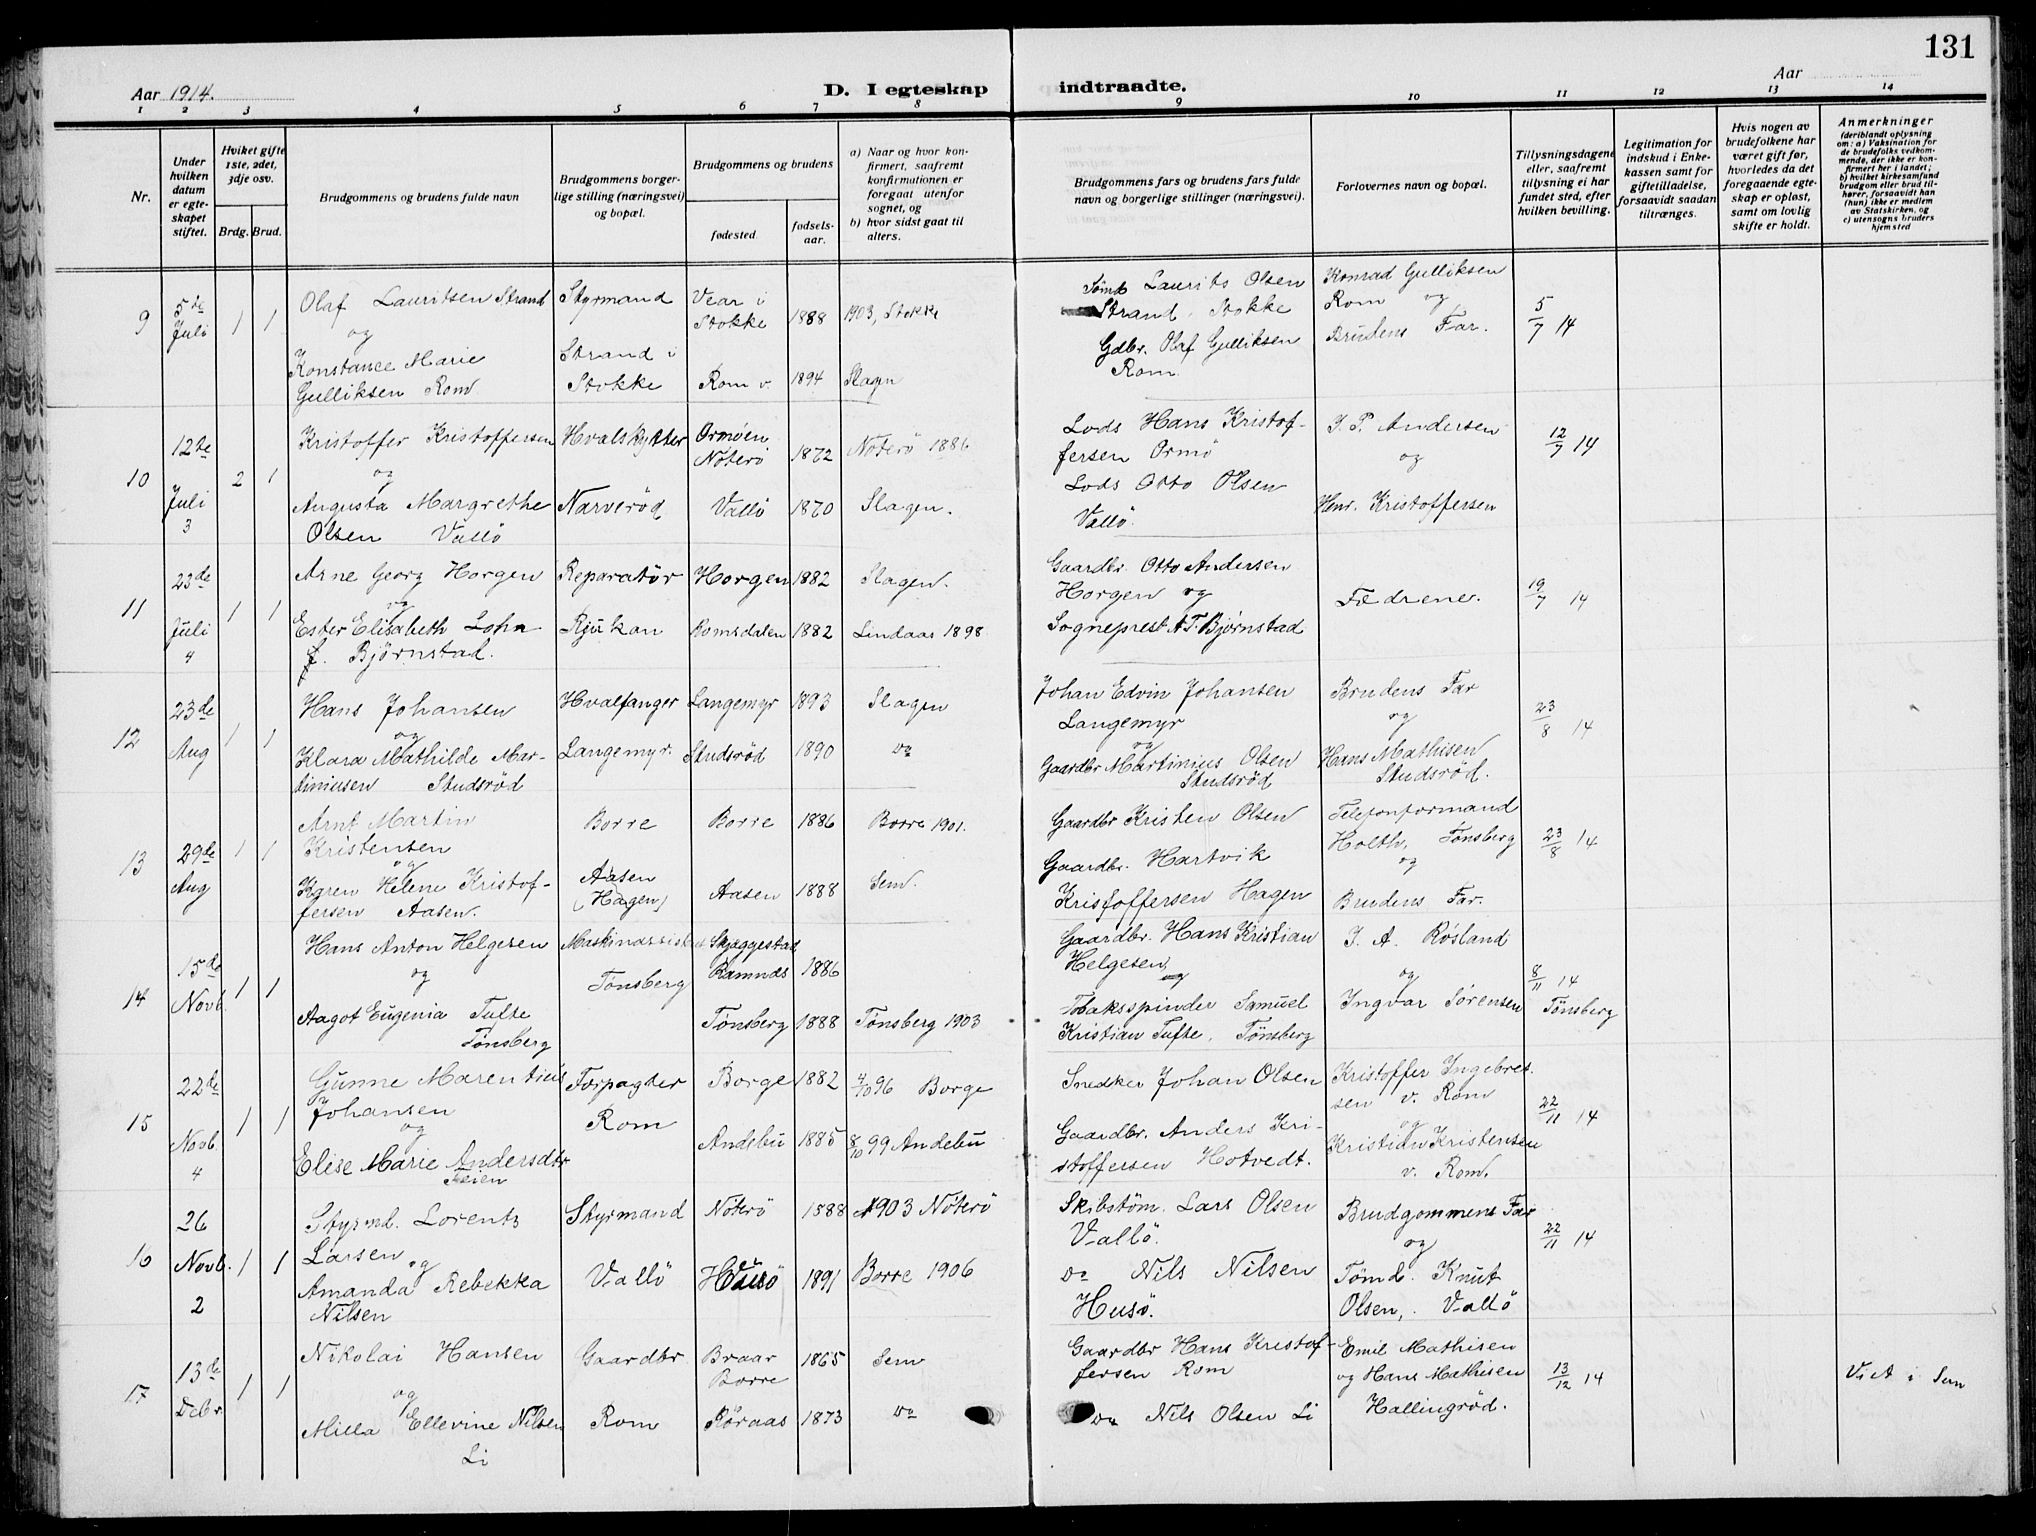 131
Aar 1914.
D. I egteskap indtraadte.
Aar
1 2 3 4 5 6 7 8 9 10 11 12 13 14
Nr.
Under hvilken datum er egteskapet stiftet.
Hviket gifte 1ste, 2det, 3dje osv.
Brdg. Brud.
Brudgommens og brudens fulde navn
Brudgommens borgerlige stilling (næringsvei) og bopæl.
Brudgommens og brudens
fødested. fødselsaar.
a) Naar og hvor konfirmert, saafremt konfirmationen er foregaat utenfor sognet, og
b) hvor sidst gaat til alters.
Brudgommens fars og brudens fars fulde navn og borgerlige stillinger (næringsvei).
Forlovernes navn og bopæl.
Tillysningsdagene eller, saafremt tillysning ei har fundet sted, efter hvilken bevilling.
Legitimation for indskud i Enkekassen samt for giftetilladelse, forsaavidt saadan tiltrænges.
Hvis nogen av brudefolkene har været gift før, hvorledes da det foregaaende egteskap er opløst, samt om lovlig skifte er holdt.
Anmerkninger
(deriblandt oplysning om: a) Vaksination for de brudefolks vedkommende, der ikke er konfirmert her i landet; b) hvilket kirkesamfund brudgom eller brud tilhører, forsaavidt han (hun) ikke er medlem av Statskirken, og c) utensogns bruders hjemsted
9 5te Juli 1 1
Olaf Lauritsen Strand
og
Konstance Marie
Gulliksen Rom
Styrmand
Strand i
Stokke
Vear i
Stokke 1888 1903, Stokke
Rom v. 1894 Slagn
Tømd Laurits Olsen
Strand, Stokke
Gdbr. Olaf Gulliksen
Rom
Konrad Gulliksen
Rom og
Brudens Far.
5/7 14
10 12te Juli 3 2 1
Kristoffer Kristoffersen
og
Augusta Margrethe
Olsen Vallö
Hvalskytter
Narveröd
Ormöen
Nöterö 1872 Nöterö 1886
Vallö 1870 Slagen.
Lods Hans Kristof-
fersen Ormö
Lods Otto Olsen
Vallö.
J. P. Andersen
og
Henr. Kristoffersen
12/7 14
11 23de Juli 4 1 1
Arne Georg Horgen
og
Ester Elisabeth Lohn
f. Björnstad.
Reparatör
Rjukan
Horgen 1882 Slagen.
Romsdalen 1882 Lindaas 1898
Gaardbr. Otto Andersen
Horgen og
Sogneprest A.T. Bjørnstad
Fædrene.
19/7 14
12 23de Aug 1 1
Hans Johansen
og
Klara Mathilde Mar-
tiniusen Studsröd
Hvalfanger
Langemyr.
Langemyr 1893 Slagen
Studsröd 1890 Do
Johan Edvin Johansen
Langemyr
og
Gaardbr Martinius Olsen
Studsröd
Brudens Far
og
Hans Mathisen
Studsröd.
23/8 14
13 29de Aug 1 1
Arnt Martin
Kristensen
og
Karen Helene Kristof-
fersen Aasen.
Borre
Aasen
(Hagen)
Borre 1886 Borre 1901.
Aasen 1888 Sem.
Gaardbr Kristen Olsen
Gaardbr. Hartvik
Kristoffersen Hagen
Telefonformand
Holth, Tønsberg
og
Brudens Far.
23/8 14
14 15de Novb. 1 1
Hans Anton Helgesen
og
Aagot Eugenia Tufte
Tønsberg
Maskinassistent
Tönsberg
Skjæggestad
Ramnæs 1886
Tønsberg 1888 Tønsberg 1903
Gaardbr. Hans Kristian
Helgesen
og
Tobaksspinder Samuel
Kristian Tufte, Tønsberg
J. A. Røsland
og
Ingvar Sørensen
8/11 14
Tønsberg
15 22de Novb. 4 1 1
Gunne Marentius
Johansen
og
Elise Marie Andersdtr
Feien
Forpagter
Rom
Borge 1882 4/10 96 Borge
Andebu 1885 8/10 99 Andebu
Snedker Johan Olsen
Gaardbr. Anders Kri-
stoffersen Hotvedt.
Kristoffer Ingebret-
sen v. Rom
og
Kristian Kristensen
v. Rom.
22/11 14
16 26 Novb. 2 1 1
Styrmd. Lorents
Larsen og
Amanda Rebekka
Nilsen
Styrmand
Vallö
Nöterö 1888 1903 Nöterö
Husö 1891 Borre 1906
Skibstöm. Lars Olsen
Vallö.
Do Nils Nilsen
Husö.
Brudgommens Far
og
Tömd. Knut
Olsen, Vallö
22/11 14
17 13de Debr. 1 1
Nikolai Hansen
og
Milla Ellevine Nilsen
Li
Gaardbr
Rom
Braar
Borre 1865 Sem
Röraas 1873 Do
Gaardbr Hans Kristof-
fersen Rom
Do Nils Olsen Li
Emil Mathisen
og Hans Mathisen
Hallingröd.
13/12 14
Viet i Sem